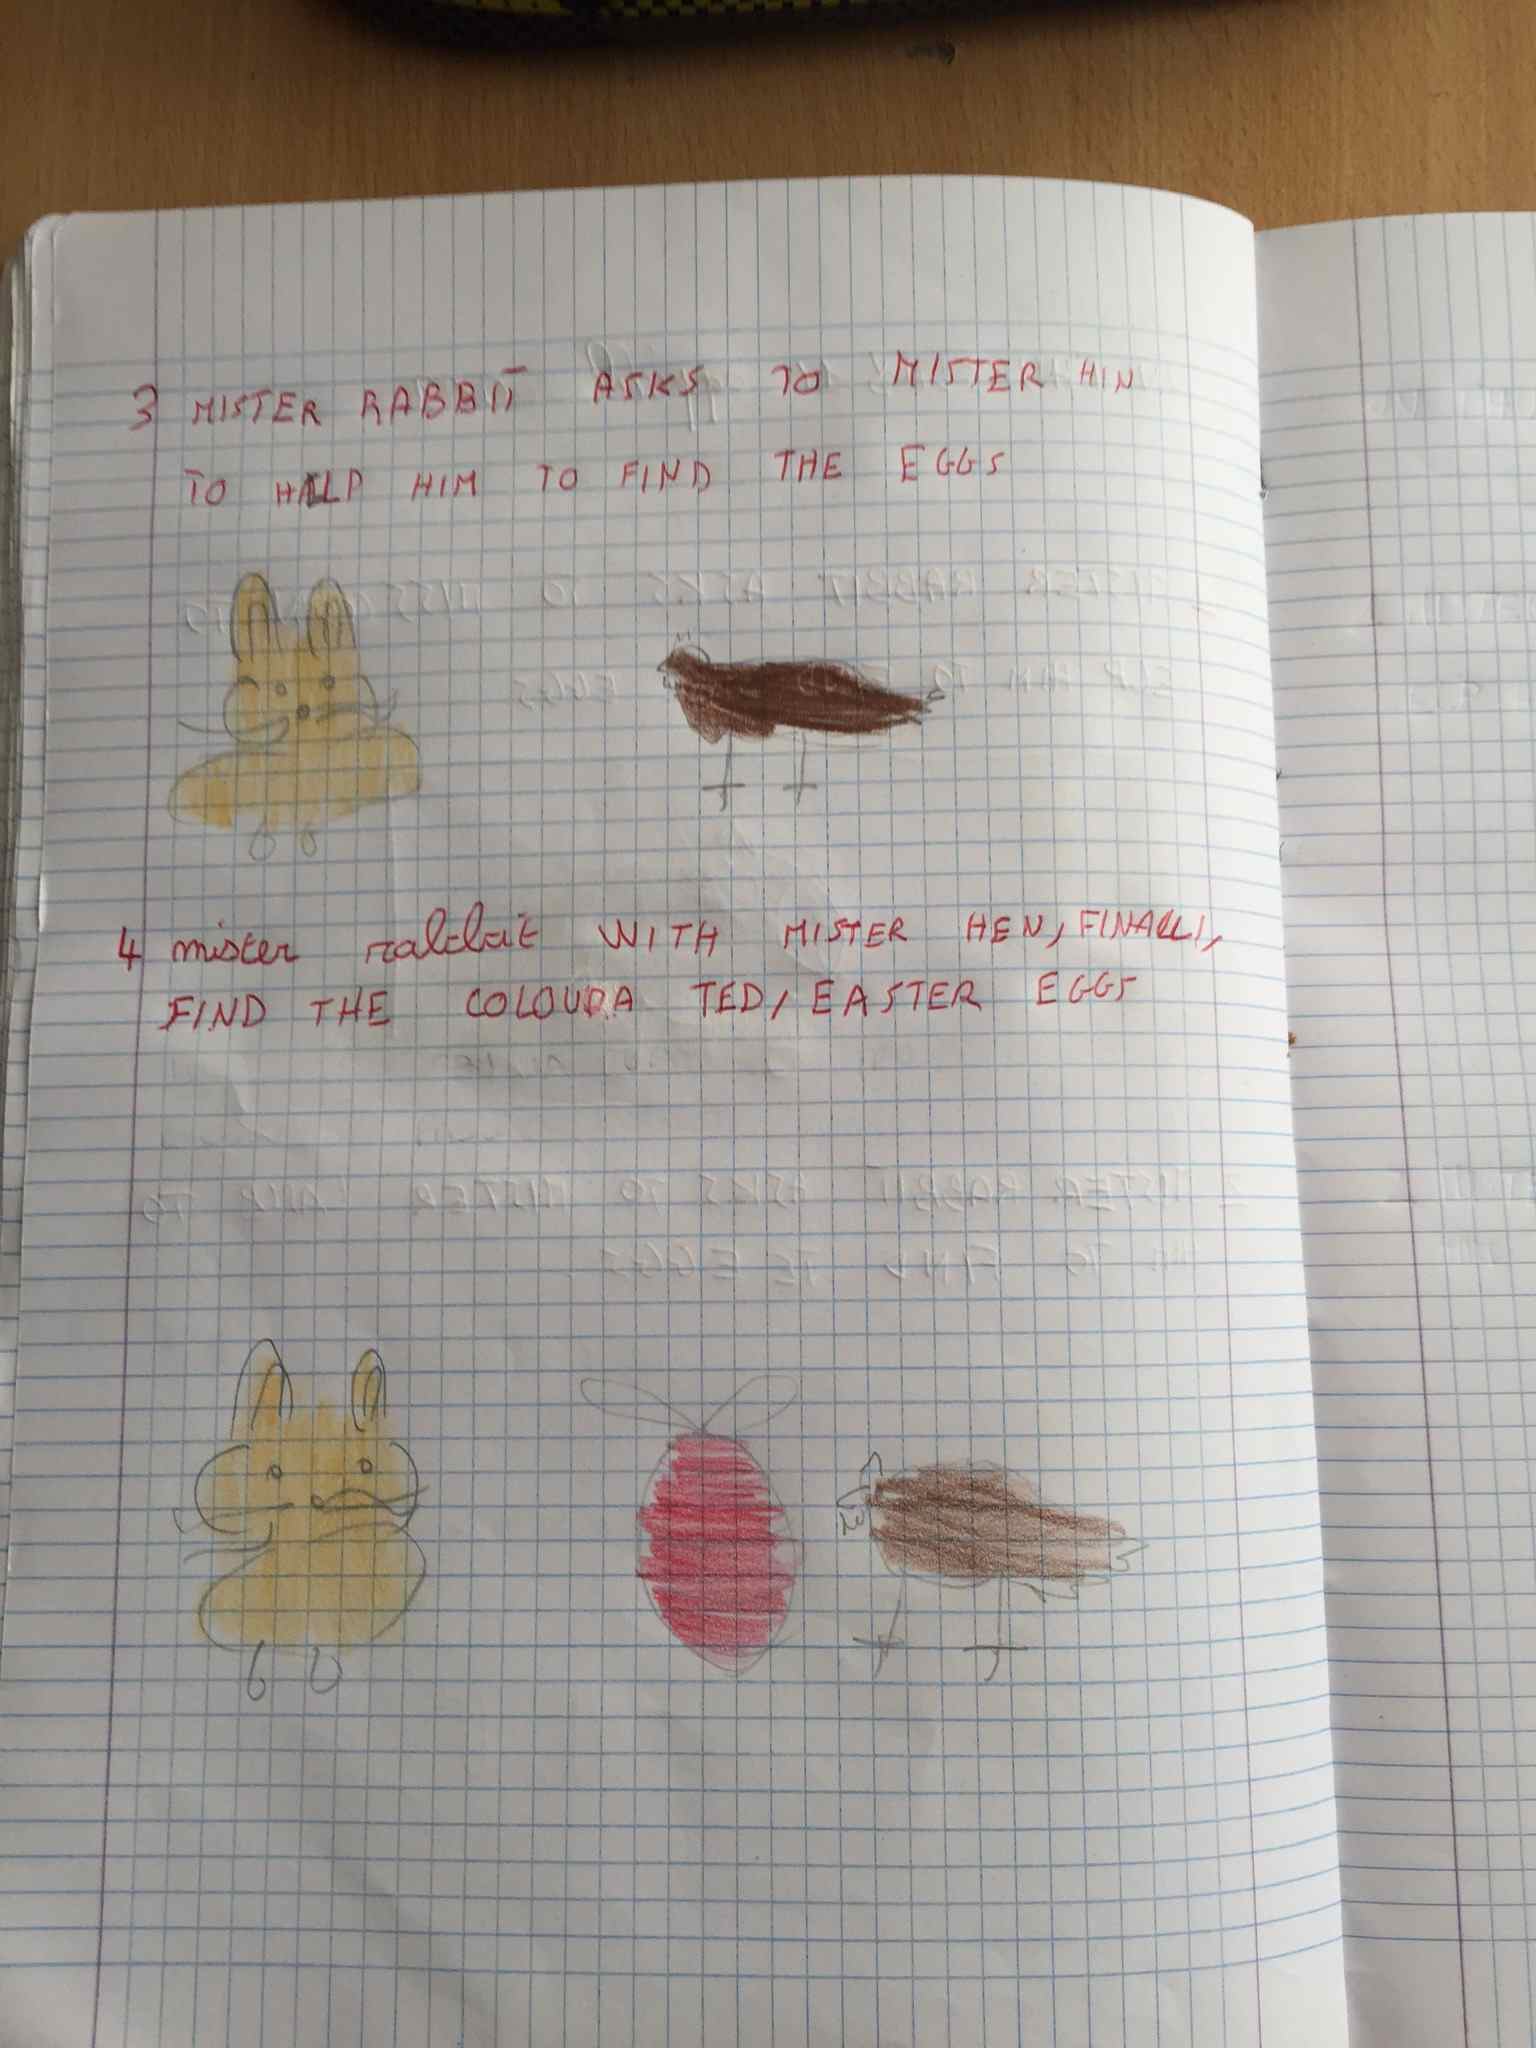 3 MISTER RABBIT ASKS TO MISTER HIN
TO HELP HIM TO FIND THE EGGS
4 mister rabbit WITH MISTER HEN, FINALLI,
FIND THE COLOURA TED, EASTER EGGS